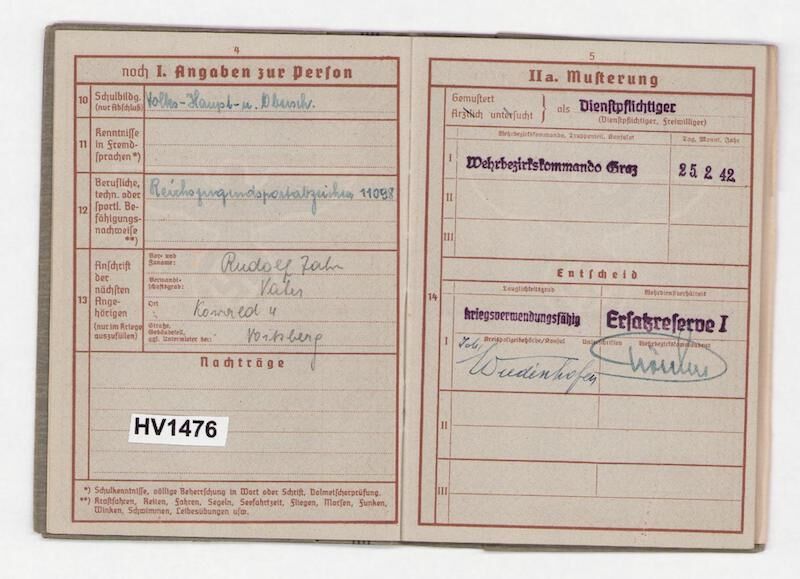 4
noch I. Angaben zur Person
10
Schulbildg.
(nur Abschluß)
Volks- Haupt- u. Obersch.
11
Kenntnisse
in Fremd-
sprachen*)
12
Berufliche,
techn. oder
sportl. Be-
fähigungs-
nachweise
**)
Reichsjugendsportabzeichen 11098
13
Anschrift
der
nächsten
Ange-
hörigen
(nur im Kriege
auszufüllen)
Vor- und
Zuname:
Rudolf Zahn
Verwandt-
schaftsgrad:
Vater
Ort
Straße,
Gebäudeteil,
ggf. Untermieter bei:
Voitsberg
Nachträge
HV1476
*) Schulkenntnisse, völlige Beherrschung in Wort oder Schrift, Dolmetscherprüfung.
**) Kraftfahren, Reiten, Fahren, Segeln, Seefahrtzeit, Fliegen, Morsen, Funken,
Winken, Schwimmen, Leibesübungen usw.
5
IIa. Musterung
Gemustert
Ärztlich untersucht
als Dienstpflichtiger
(Dienstpflichtiger, Freiwilliger)
Wehrbezirkskommando, Truppenteil, Konsulat
Tag, Monat, Jahr
I
Wehrbezirkskommando Graz
25 2 42
II
III
Entscheid
14
Tauglichkeitsgrad
Wehrdienstverhältnis
kriegsverwendungsfähig
Ersatzreserve I
I
Kreispolizeibehörde/Konsul
Unterschriften
Wehrbezirkskommandeur
Wiedenhofer
II
III